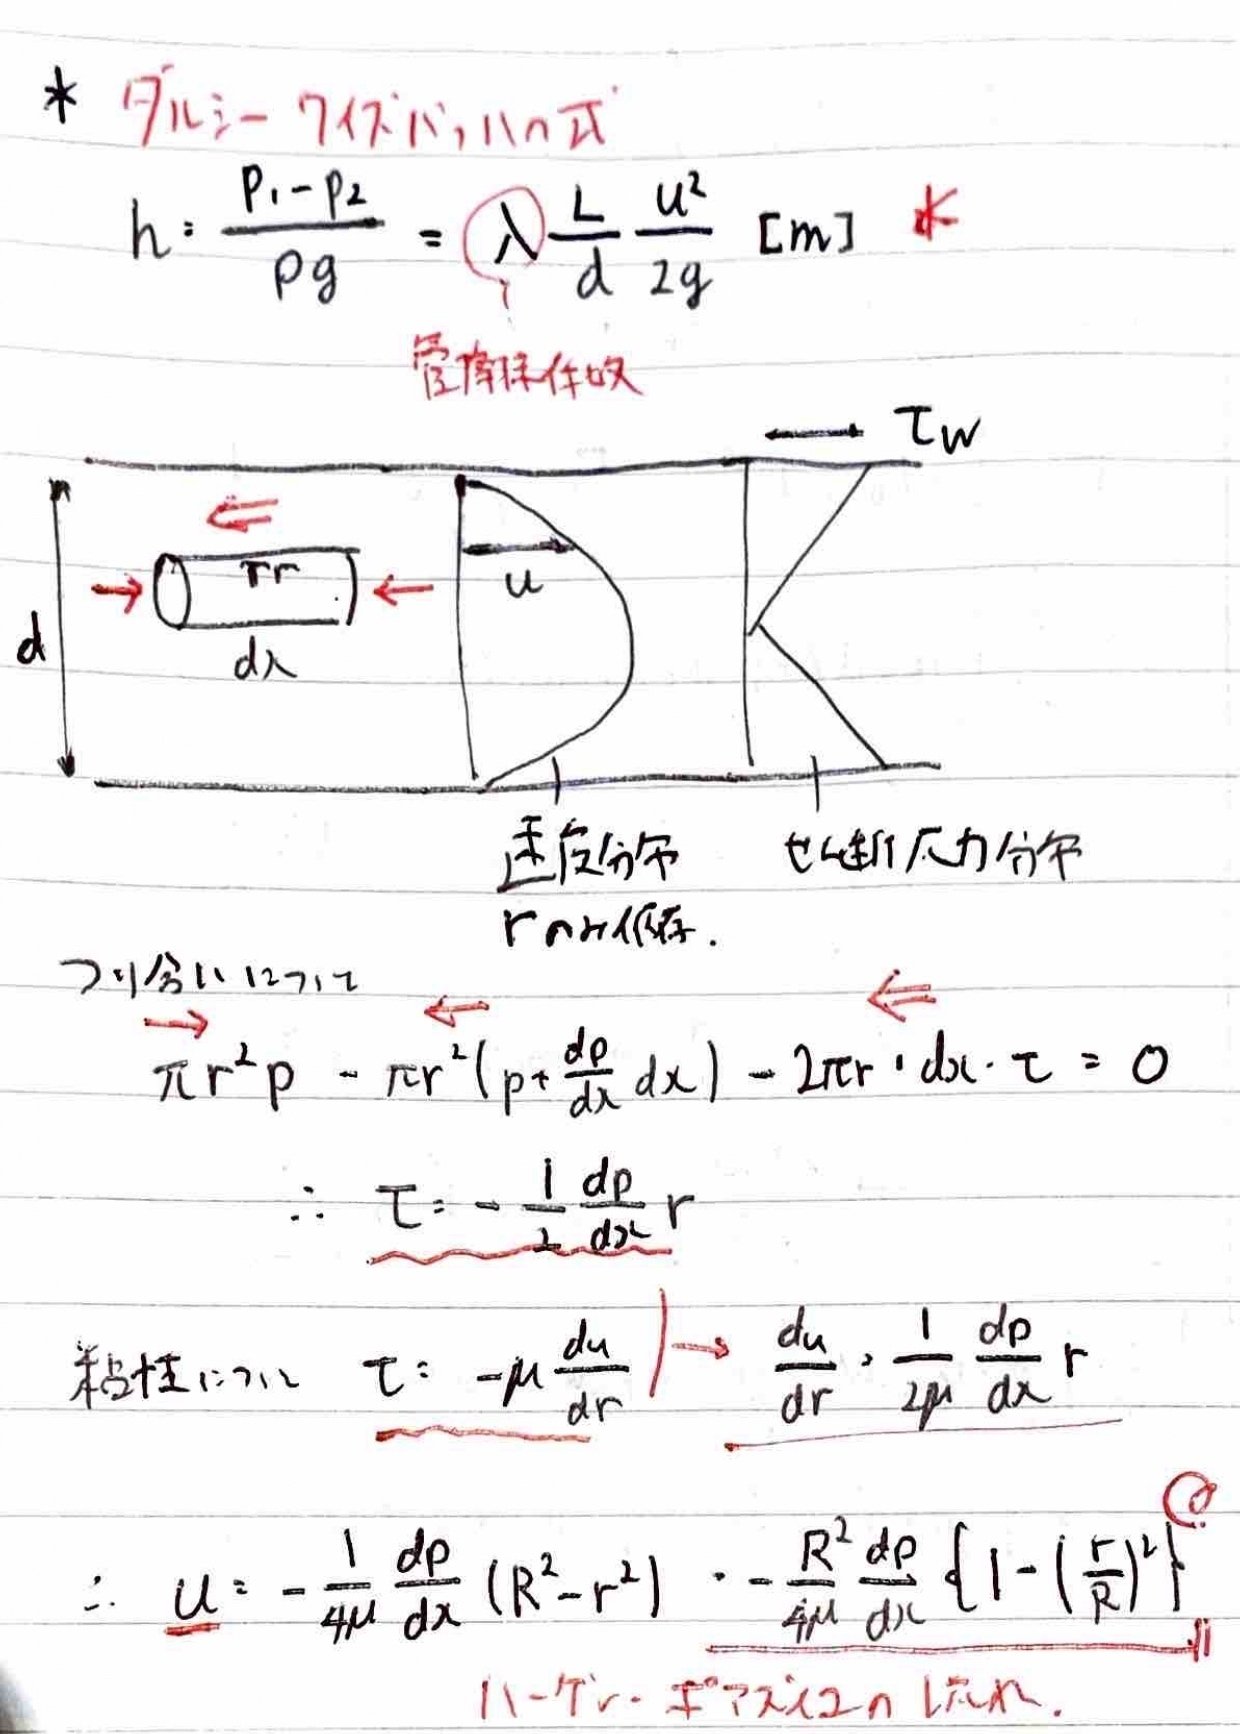 * ダルシーワイズバッハの式
h = p₁-p₂/ρg = λ L/d u²/2g [m] *
管摩係数
τw
πr
u
d
dx
速度分布 せん断応力分布
rのみ依存.
つり合いについて
πr²p - πr²(p+dp/dx dx) - 2πr・dx・τ = 0
∴ τ = -1/2 dp/dx r
粘性について τ = -μ du/dr → du/dr = 1/2μ dp/dx r
∴ u = -1/4μ dp/dx (R²-r²) = -R²/4μ dp/dx {1-(r/R)²}
ハーゲン・ポアズイユの流れ.